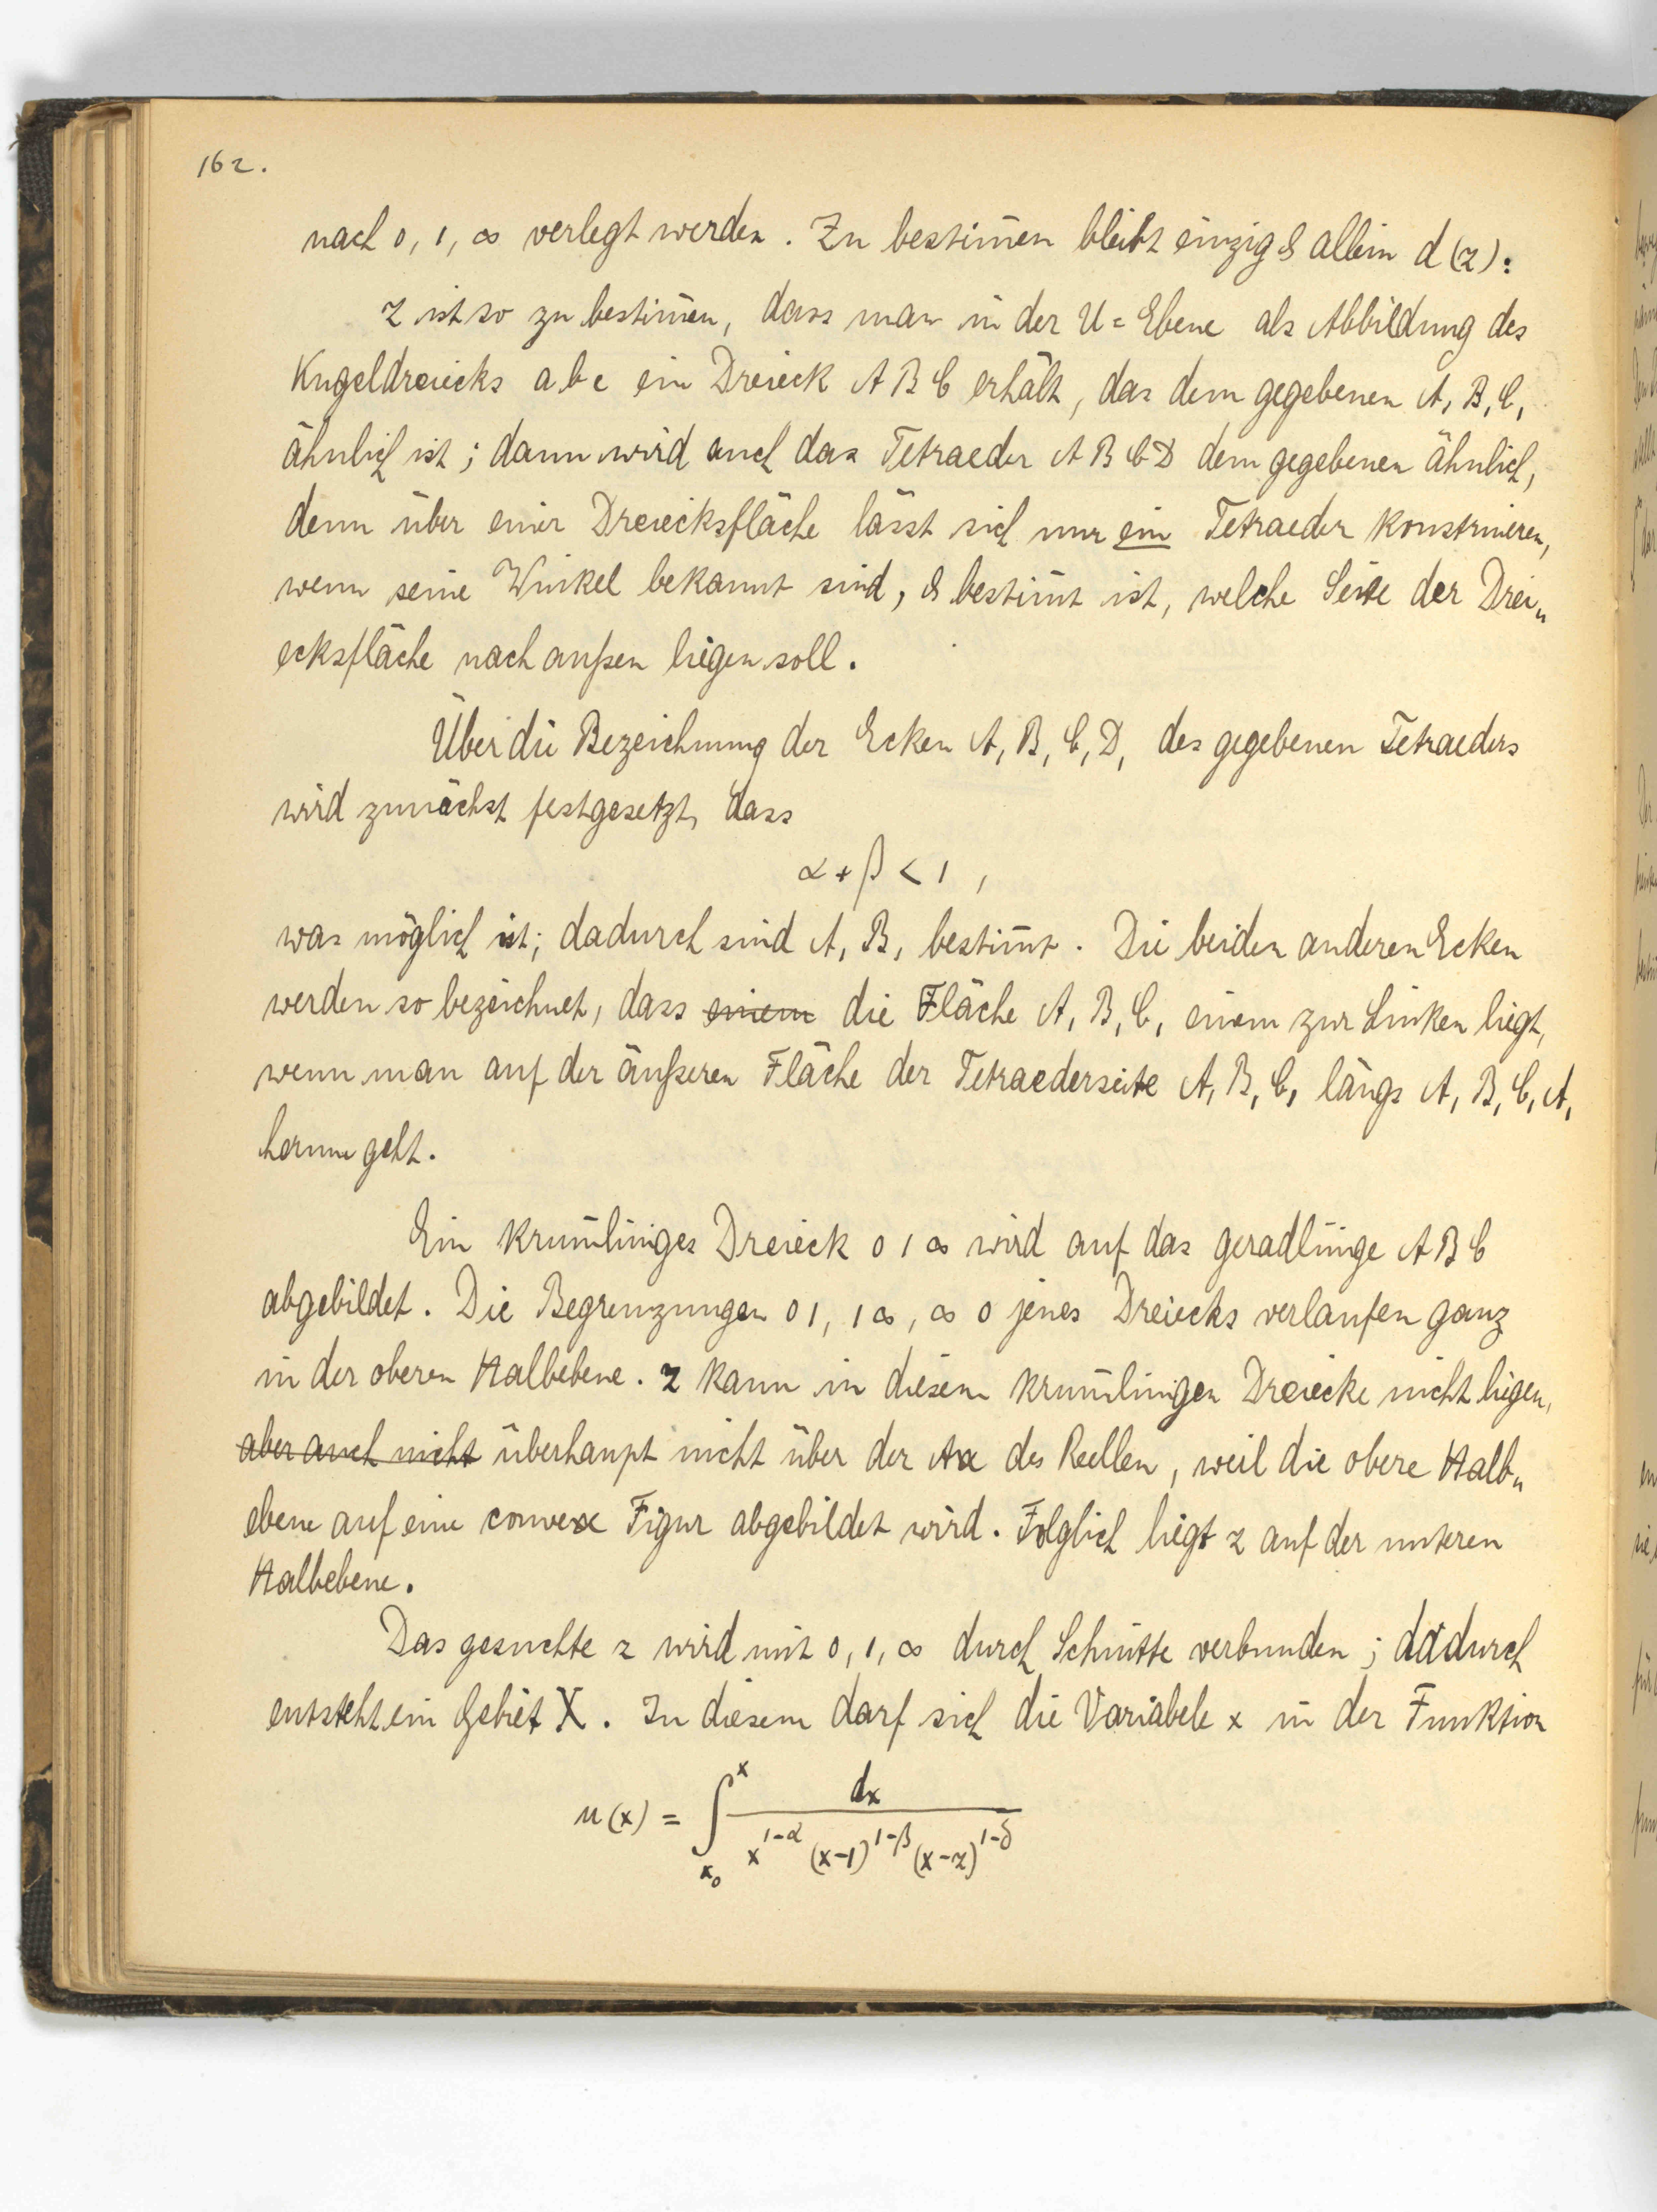 162.
nach 0, 1, ∞ verlegt werden. Zu bestim̄en bleibt einzig & allein d (z):
z ist so zu bestim̄en, dass man in der U = Ebene als Abbildung des
Kugeldreiecks a b c ein Dreieck A B C erhält, das dem gegebenen A₁ B₁ C₁
ähnlich ist; dann wird auch das Tetraeder A B C D dem gegebenen ähnlich,
denn über einer Dreiecksfläche lässt sich nur ein Tetraeder konstruieren,
wenn seine Winkel bekannt sind, & bestim̄t ist, welche Seite der Drei„
ecksfläche nach außen liegen soll.
Über die Bezeichnung der Ecken A₁ B₁ C₁ D₁ des gegebenen Tetraeders
wird zunächst festgesetzt, dass
α + β < 1 ,
was möglich ist; dadurch sind A₁ B₁ bestim̄t. Die beiden anderen Ecken
werden so bezeichnet, dass einem die Fläche A₁ B₁ C₁ einem zur Linken liegt,
wenn man auf der äußeren Fläche der Tetraederseite A₁ B₁ C₁ längs A₁ B₁ C₁ A₁
herum geht.
Ein krum̄liniges Dreieck 0 1 ∞ wird auf das geradlinige A B C
abgebildet. Die Begrenzungen 0 1, 1 ∞, ∞ 0 jenes Dreiecks verlaufen ganz
in der oberen Halbebene. z kann in diesem krum̄linigen Dreiecke nicht liegen,
aber auch nicht überhaupt nicht über der Axe des Reellen, weil die obere Halb„
ebene auf eine convexe Figur abgebildet wird. Folglich liegt z auf der unteren
Halbebene.
Das gesuchte z wird mit 0, 1, ∞ durch Schnitte verbunden; dadurch
entsteht ein Gebiet X. In diesem darf sich die Variabele x in der Funktion
u(x) = ∫_{x₀}^{x} dx / (x^{1-α} (x-1)^{1-β} (x-z)^{1-δ})